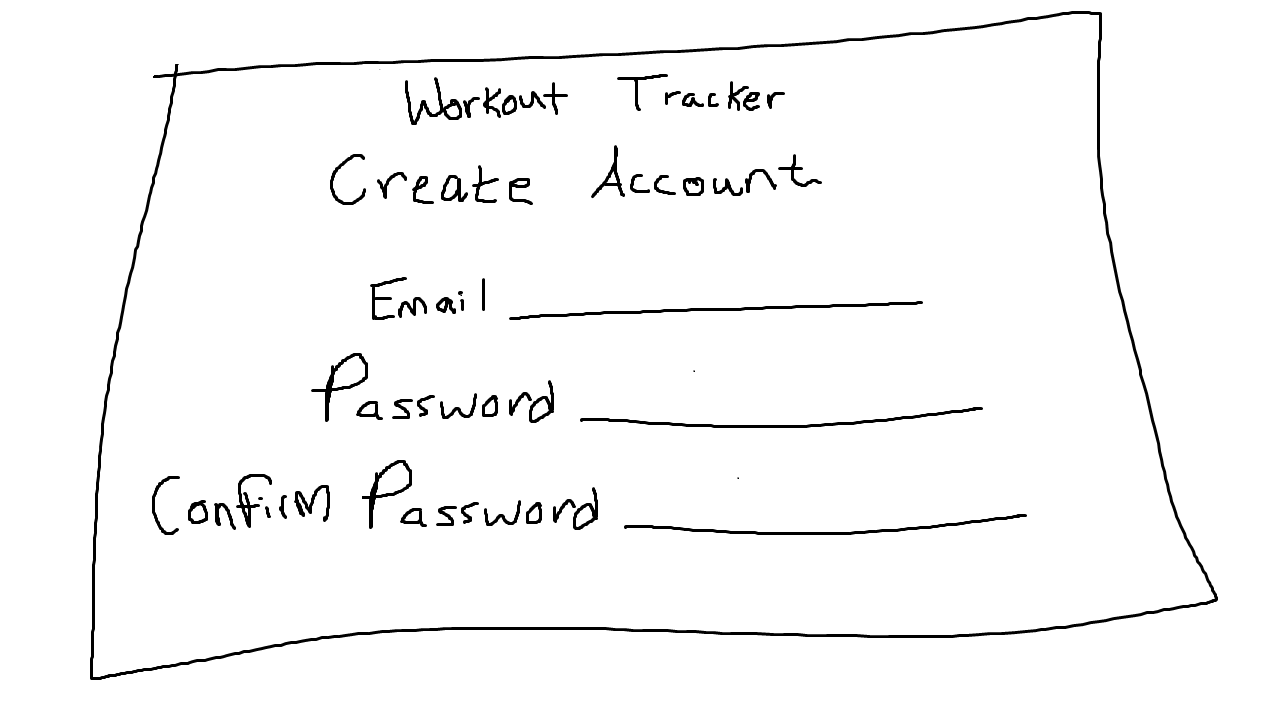 Workout Tracker
Create Account
Email
Password
Confirm Password